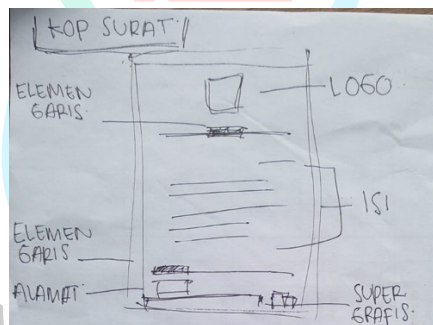 KOP SURAT
ELEMEN
GARIS.
LOGO
ISI
ELEMEN
GARIS
ALAMAT
SUPER
GRAFIS.